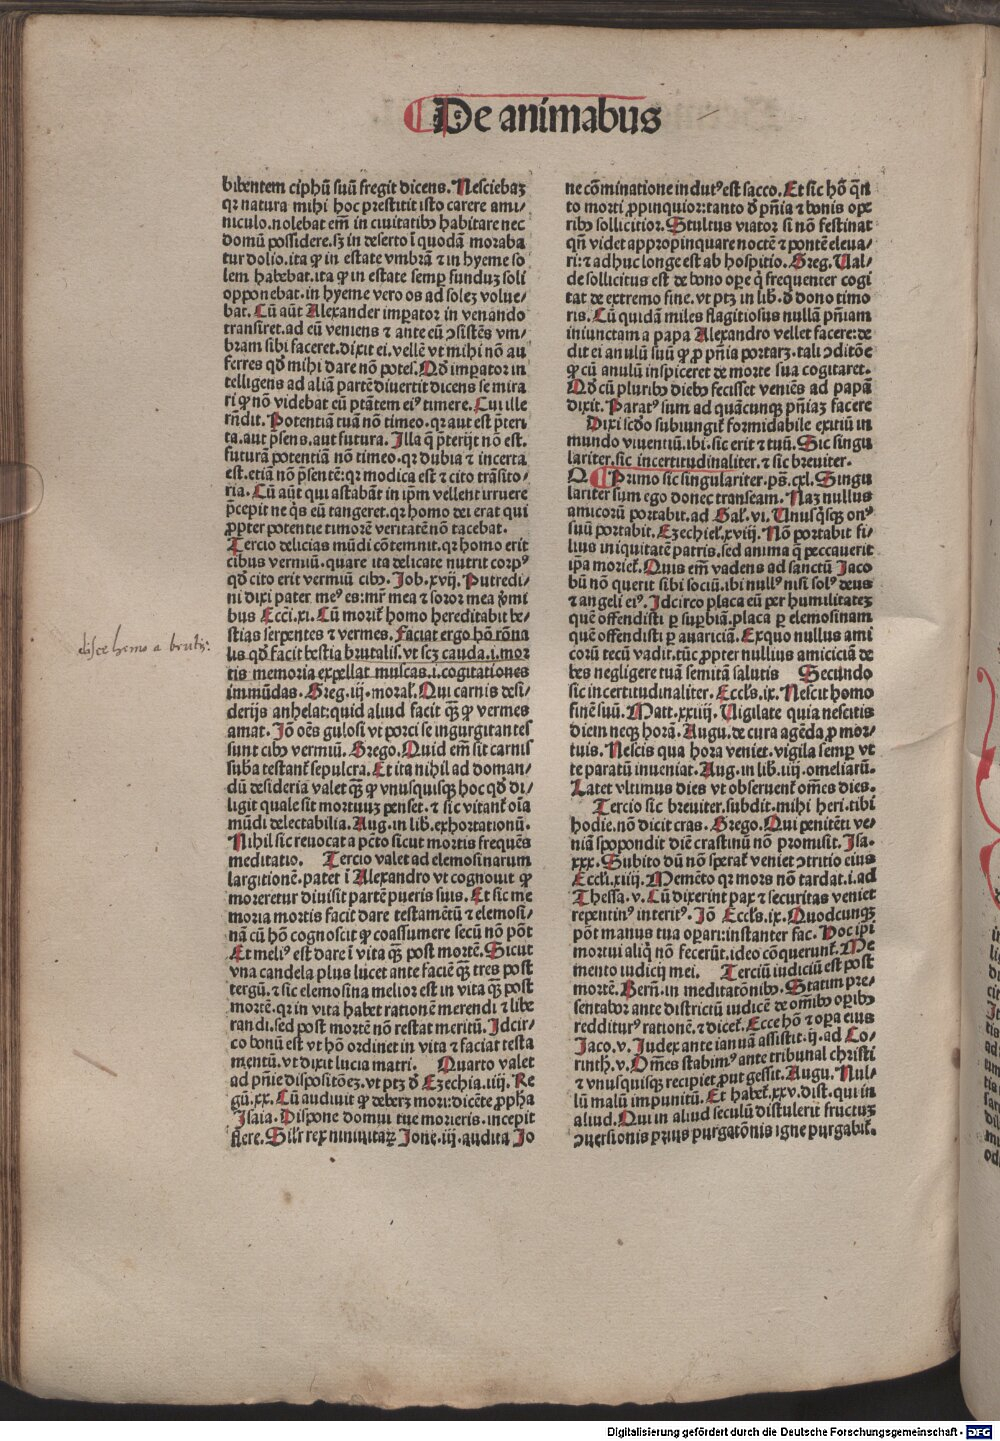 De animabus
bibentem ciphū suū fregit dicens. Nesciebaꝫ
qꝛ natura mihi hoc prestitit isto carere ami/
niculo. nolebat em̄ in ciuitatibꝰ habitare nec
domū possidere. sꝫ in deserto ī quodā moraba
tur dolio. ita ꝙ in estate vmbrā ⁊ in hyeme so
lem habebat. ita ꝙ in estate semꝑ funduꝫ soli
opponebat. in hyeme vero os ad soleꝫ volue/
bat. Cū aūt Alexander imꝑator in venando
transiret. ad eū veniens ⁊ ante eū ꝯsistēs vm/
bram sibi faceret. dixit ei. vellē vt mihi nō au
ferres qd̛ mihi dare nō potes. Qd̛ imꝑator in
telligens ad aliā partē diuertit dicens se mira
ri ꝙ nō videbat eū ptātem eiꝰ timere. Cui ille
rn̄dit. Potentiā tuā nō timeo. qꝛ aut est p̄teri
ta. aut p̄sens. aut futura. Illa q̄ p̄terijt nō est.
futurā potentiā nō timeo. qꝛ dubia ⁊ incerta
est. etiā nō p̄sentē: qꝛ modica est ⁊ cito trāsito/
ria. Cū aūt qui astabāt in ip̄m vellent irruere
p̄cepit ne qͥs eū tangeret. qꝛ homo dei erat qui
ꝓpter potentie timorē veritatē nō tacebat.
Tercio delicias mūdi cōtemnit. qꝛ homo erit
cibus vermiū. quare ita delicate nutrit corpꝰ
qd̛ cito erit vermiū cibꝰ. Job. xvij. Putredi/
ni dixi pater meꝰ es: mr̄ mea ⁊ soror mea v̓mi
bus Ecci. xi. Cū moriť homo hereditabit be/
stias serpentes ⁊ vermes. Faciat ergo hō rōna
lis qd̛ facit bestia brutalis. vt scꝫ cauda. i. mor
tis memoria expellat muscas. i. cogitationes
immūdas. Greg. iij. moral̓. Qui carnis desi/
derijs anhelat: quid aliud facit qͣꝫ ꝙ vermes
amat. Jō oēs gulosi vt porci se ingurgitantes
sunt cibꝰ vermiū. Grego. Quid em̄ sit carnis
suba testanť sepulcra. Et ita nihil ad doman/
dū desideria valet qͣꝫ ꝙ vnusquisqꝫ hoc qd̛ di/
ligit quale sit mortuuꝫ penset. ⁊ sic vitanť oīa
mūdi delectabilia. Aug. in lib. exhortationū.
Nihil sic reuocat a pc̄to sicut mortis frequēs
meditatio. Tercio valet ad elemosinarum
largitionē. patet ī Alexandro vt cognouit ꝙ
moreretur diuisit partē pueris suis. Et sic me
moria mortis facit dare testamētū ⁊ elemosi/
nā cū hō cognoscit ꝙ coassumere secū nō pōt
Et meliꝰ est dare ī vita qͣꝫ post mortē. Sicut
vna candela plus lucet ante faciē qͣꝫ tres post
tergū. ⁊ sic elemosina melior est in vita qͣꝫ post
mortē. qꝛ in vita habet rationē merendi ⁊ libe
randi. sed post mortē nō restat meritū. Jdcir/
co bonū est vt hō ordinet in vita ⁊ faciat testa
mentū. vt dixit lucia matri. Quarto valet
ad pn̄ie dispositōeꝫ. vt ptꝫ d̛ Ezechia. iiij. Re
gū. xx. Cū audiuit ꝙ deberꝫ mori: dicēte ꝓpha
Jsaia. Dispone domui tue morieris. incepit
flere. Sil̓r rex niniuitaꝝ Jone. iij. audita Jo
disce homo a brutis:
ne cōminatione indutꝰ est sacco. Et sic hō qn̄
to morti ꝓpinquior: tanto d̛ pn̄ia ⁊ bonis ope
ribꝰ sollicitior. Stultus viator si nō festinat
qn̄ videt appropinquare noctē ⁊ pontē eleua/
ri: ⁊ adhuc longe est ab hospitio. Greg. Ual/
de sollicitus est de bono oꝑe qͥ frequenter cogi
tat de extremo fine. vt ptꝫ in lib. d̛ dono timo
ris. Cū quidā miles flagitiosus nullā pn̄iam
iniunctam a papa Alexandro vellet facere: de
dit ei anulū suū ꝙ ꝓ pn̄ia portarꝫ. tali ꝯditōe
ꝙ cū anulū inspiceret de morte sua cogitaret.
Qd̛ cū pluribꝰ diebꝰ fecisset veniēs ad papā
dixit. Paratꝰ sum ad quācunqꝫ pn̄iaꝫ facere
Dixi scd̛o subiungiť formidabile exitiū in
mundo viuentiū. ibi. sic erit ⁊ tuū. Sic singu
lariter. sic incertitudinaliter. ⁊ sic breuiter.
Primo sic singulariter. ps̄. cxl. Singu
lariter sum ego donec transeam. Naꝫ nullus
amicorū portabit. ad Gal̓. vi. Unusqͥsqꝫ onꝰ
suū portabit. Ezechiel̓. xviij. Nō portabit fi/
lius iniquitatē patris. sed anima q̄ peccauerit
ip̄a morieť. Quis em̄ vadens ad sanctū Jaco
bū nō querit sibi sociū. ibi nullꝰ nisi solꝰ deus
⁊ angeli eiꝰ. Jdcirco placa eū per humilitateꝫ
quē offendisti ꝑ suꝑbiā. placa ꝑ elemosinam
quē offendisti ꝑ auariciā. Exquo nullus ami
corū tecū vadit. tūc ꝓpter nullius amiciciā de
bes negligere tuā semitā salutis Secundo
sic incertitudinaliter. Eccl̓s. ix. Nescit homo
finē suū. Matt. xxiiij. Uigilate quia nescitis
diem neqꝫ horā. Augu. de cura agēda ꝓ mor/
tuis. Nescis qua hora veniet. vigila semꝑ vt
te paratū inueniat. Aug. in lib. iiij. omeliarū.
Latet vltimus dies vt obseruenť om̄es dies.
Tercio sic breuiter. subdit. mihi heri. tibi
hodie. nō dicit cras. Grego. Qui penitēti ve/
niā spopondit diē crastinū nō promisit. Jsa.
xxx. Subito dū nō sperať veniet ꝯtritio eius
Eccl̓i. xiiij. Memēto qꝛ mors nō tardat. i. ad
Thessa. v. Cū dixerint pax ⁊ securitas veniet
repentinꝰ interitꝰ. Jō Eccl̓s. ix. Quodcunqꝫ
pōt manus tua oꝑari: instanter fac. Hoc ip̄i
mortui aliqͥ nō fecerūt. ideo cōquerunť. Me
mento iudicij mei. Terciū iudiciū est post
mortē. Bern̄. in meditatōnibꝰ. Statim pre/
sentabor ante districtū iudicē de om̄ibꝰ oꝑibꝰ
redditurꝰ rationē. ⁊ diceť. Ecce hō ⁊ oꝑa eius
Jaco. v. Judex ante ianuā assistit. ij. ad Co/
rinth. v. Om̄es stabimꝰ ante tribunal christi
⁊ vnusquisqꝫ recipiet ꝓut gessit. Augu. Nul/
lū malū impunitū. Et habeť. xxv. dist. qui in
aliud. Qui in aliud seculū distulerit fructuꝫ
ꝯuersionis prius purgatōnis igne purgabiť.
Digitalisierung gefördert durch die Deutsche Forschungsgemeinschaft - DFG